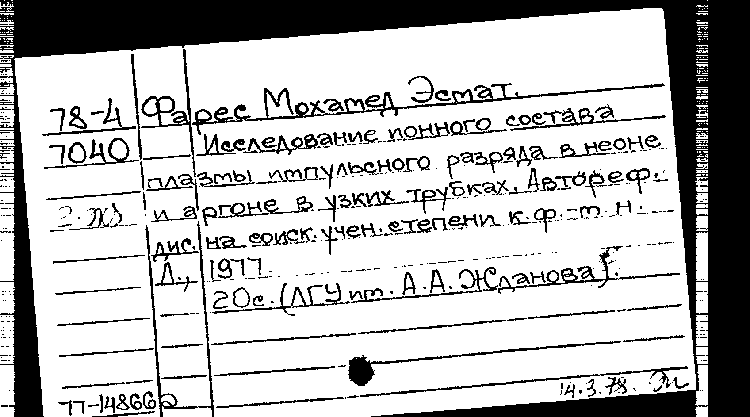 78-4 Фарес Мохамед Эсмат.
7040 Исследование ионного состава
плазмы импульсного разряда в неоне
и аргоне в узких трубках. Автореф.
дис. на соиск. учен. степени к. ф.-т. н.
Л., 1977.
20с. (ЛГУ им. А.А. Жданова).
77-14866
14.3.78.